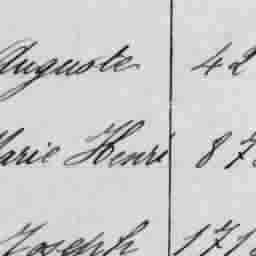 Auguste 42
Marie Henri 87
Joseph 171